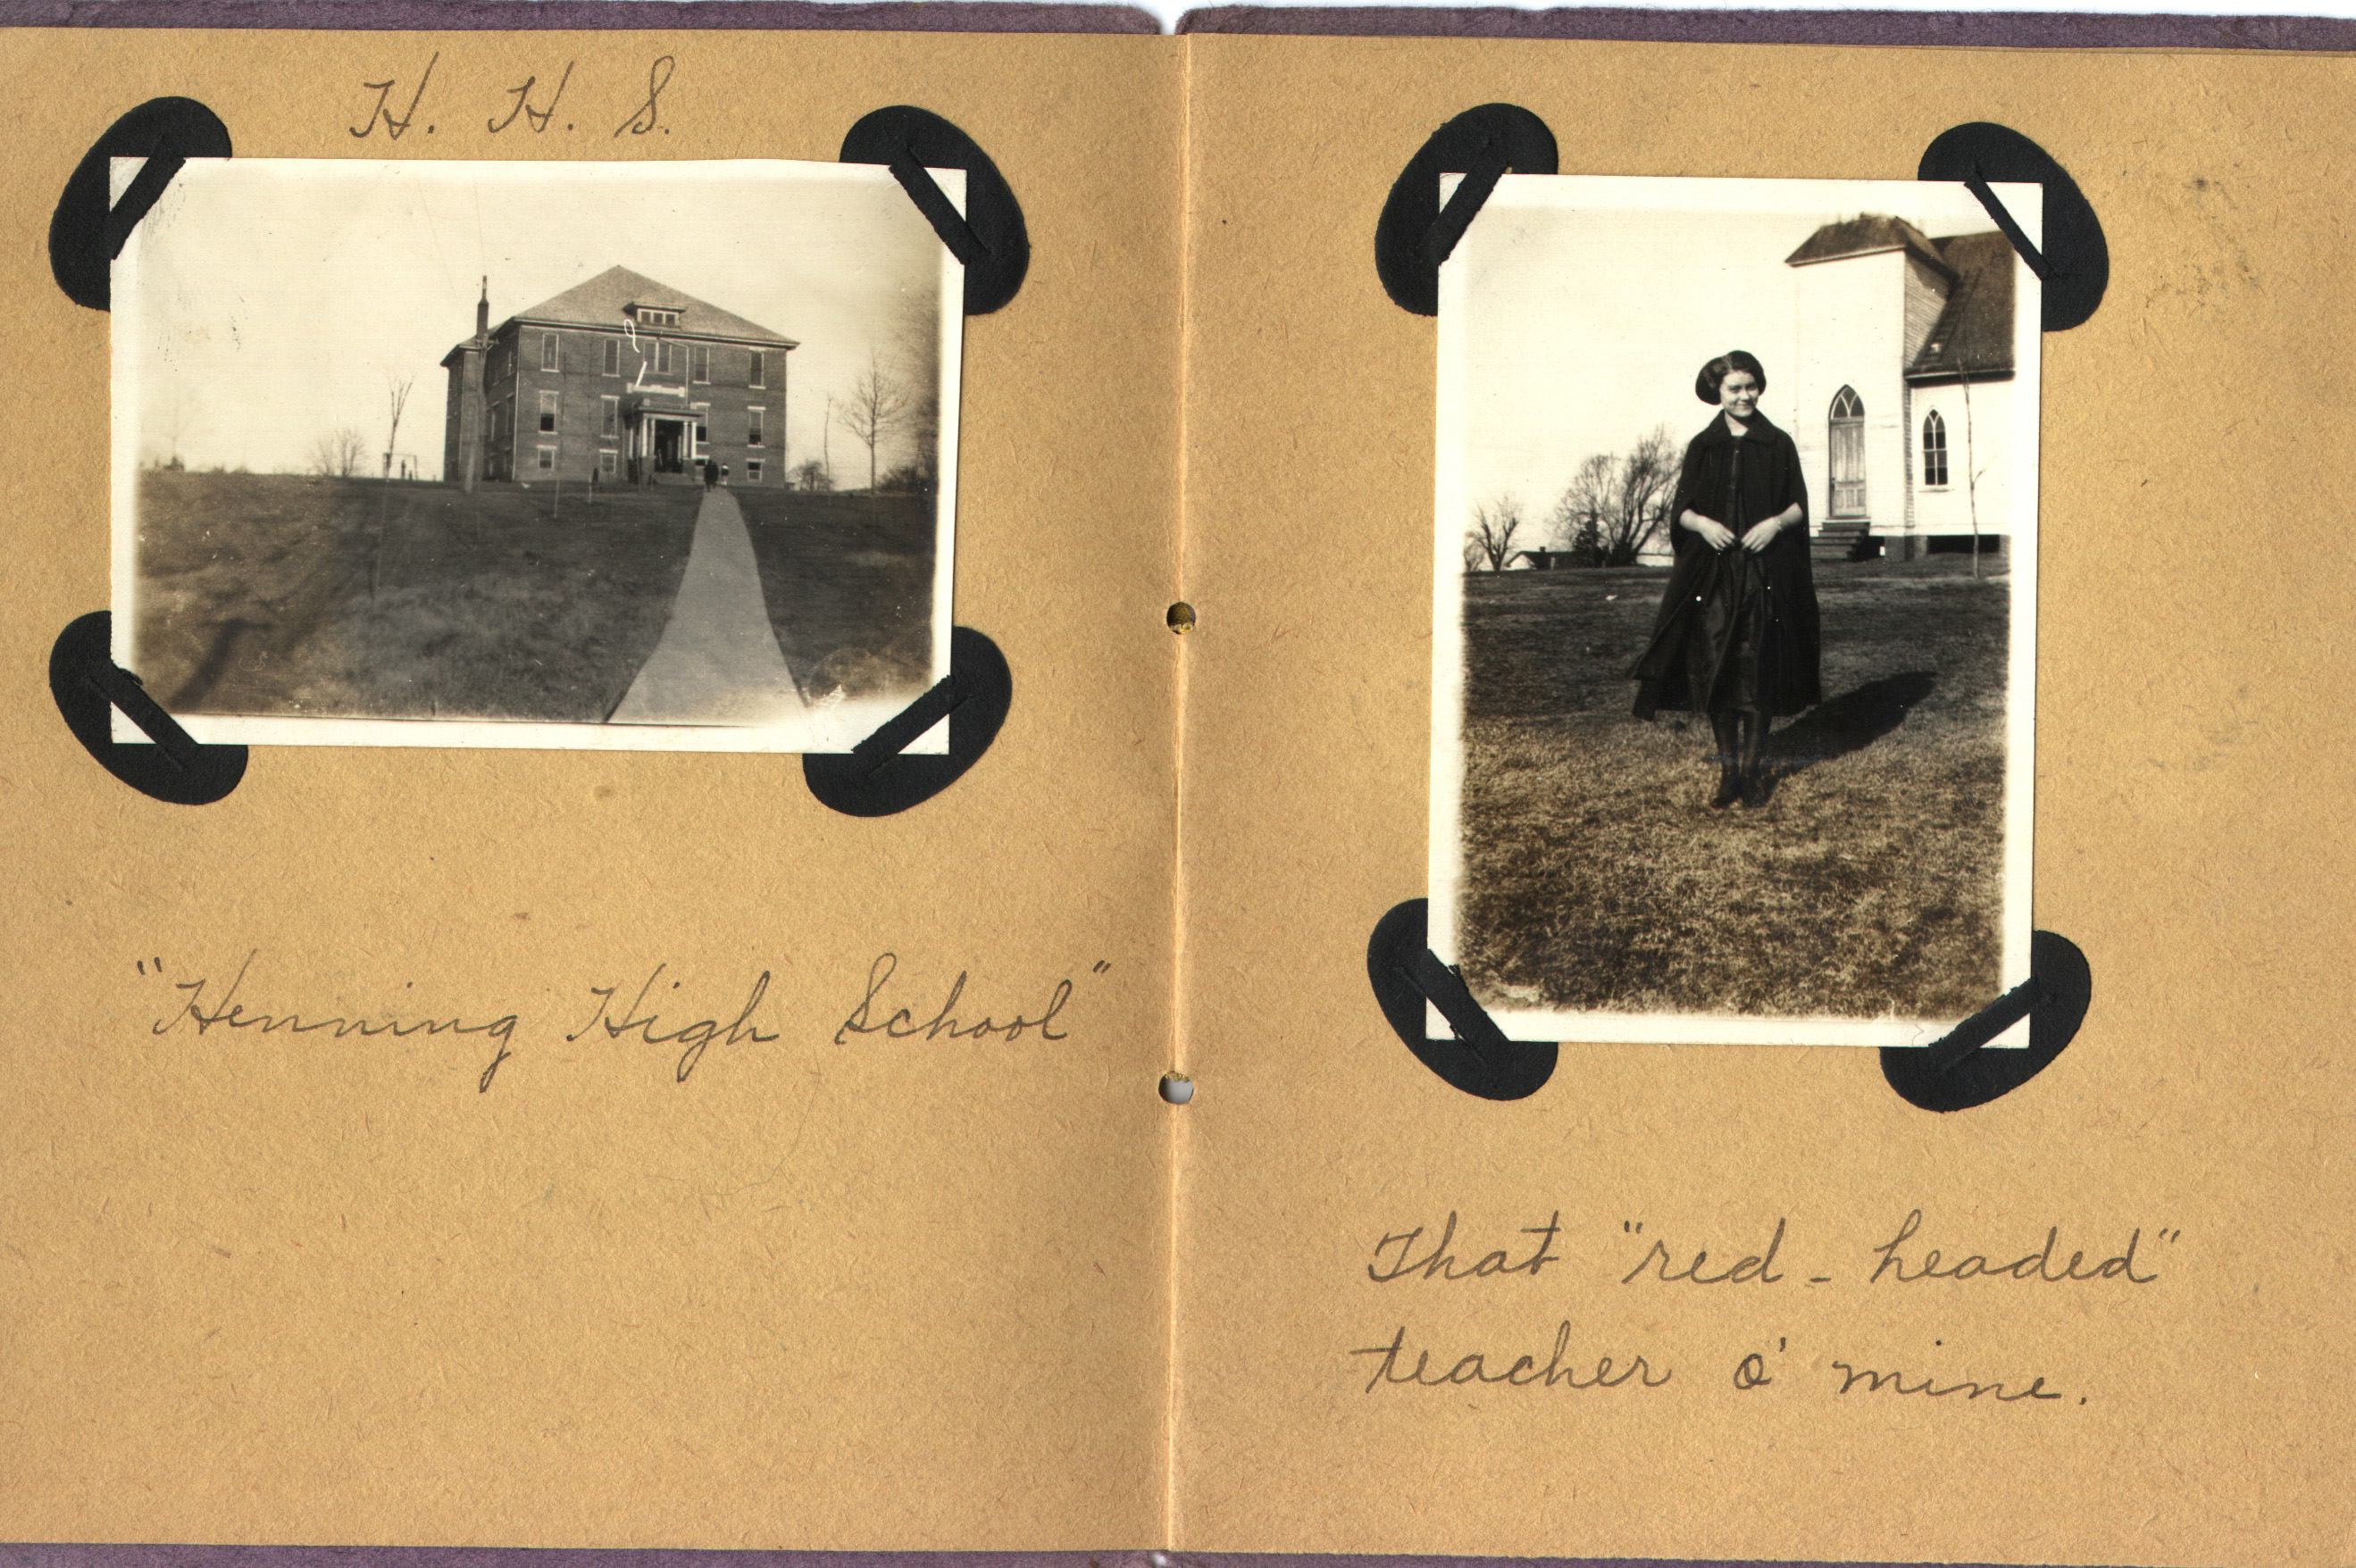 H. H. S.
"Henning High School"
That "red-headed"
teacher o' mine.